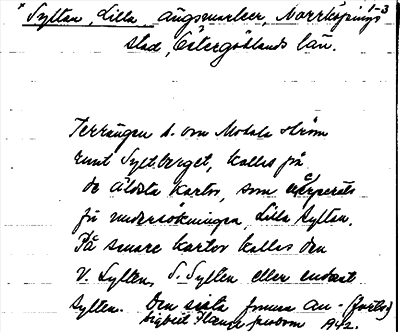 * Syltan, Lilla, ängsmarker, Norrköpings 1-3
stad, Östergötlands län.
Terrängen s. om Motala ström
runt Syltberget, kallas på
de äldsta kartor, som
för undersökningen, Lilla Syltan.
På senare kartor kallas den
V. Sylten, S. Syltan eller endast
Sylten. Den sista formen an- (forts)
1942.